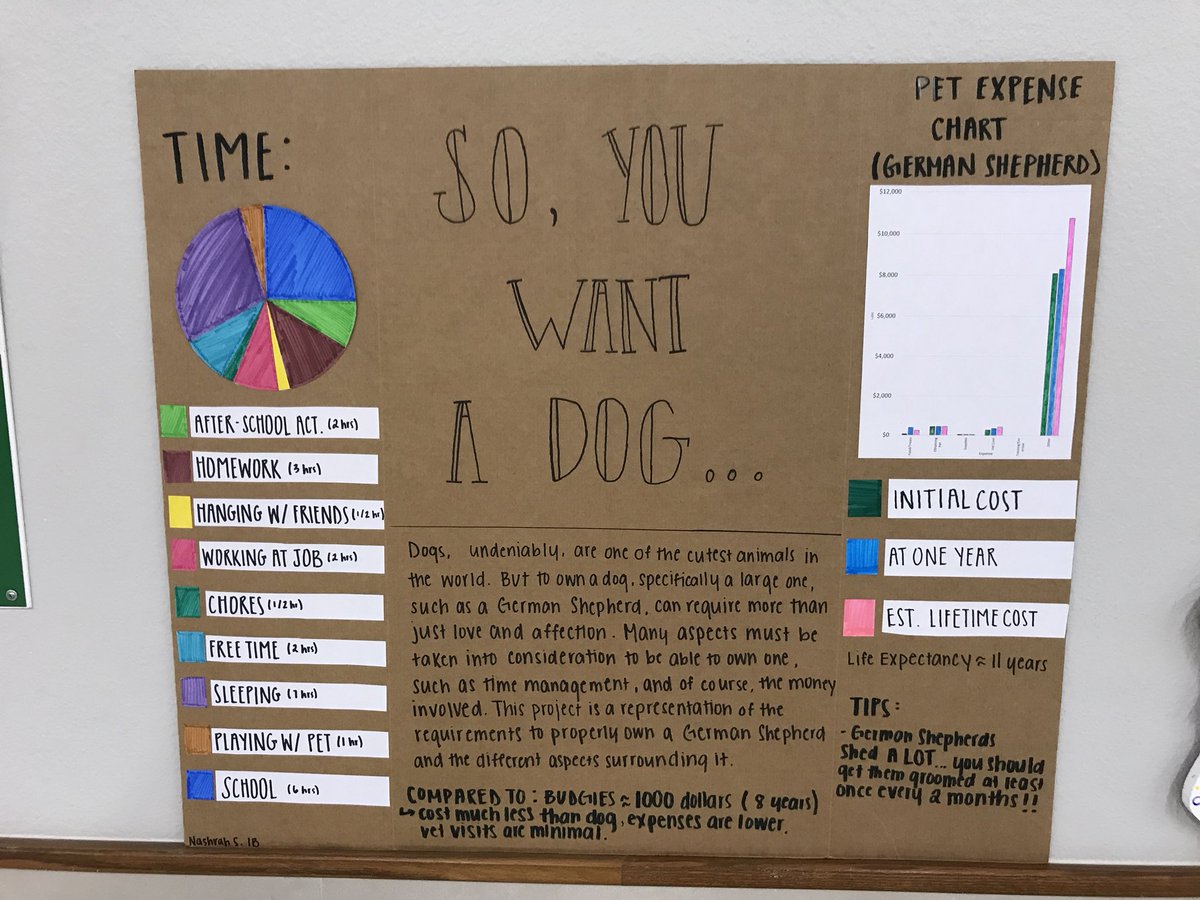 TIME:
AFTER-SCHOOL ACT. (2 hrs)
HOMEWORK (3 hrs)
HANGING W/ FRIENDS (1/2 hr)
WORKING AT JOB (2 hrs)
CHORES (1/2 hr)
FREE TIME (2 hrs)
SLEEPING (7 hrs)
PLAYING W/ PET (1 hr)
SCHOOL (6 hrs)
Nashrah S. 1B
SO, YOU
WANT
A DOG...
Dogs, undeniably, are one of the cutest animals in
the world. But to own a dog, specifically a large one,
such as a German Shepherd, can require more than
just love and affection. Many aspects must be
taken into consideration to be able to own one,
such as time management, and of course, the money
involved. This project is a representation of the
requirements to properly own a German Shepherd
and the different aspects surrounding it.
COMPARED TO: BUDGIES ≈ 1000 dollars (8 years)
↳ cost much less than dog, expenses are lower.
vet visits are minimal.
PET EXPENSE
CHART
(GERMAN SHEPHERD)
$12,000
$10,000
$8,000
$6,000
$4,000
$2,000
$0
INITIAL COST
AT ONE YEAR
EST. LIFETIME COST
Life Expectancy ≈ 11 years
TIPS:
- German Shepherds
shed A LOT... you should
get them groomed at least
once every 2 months!!